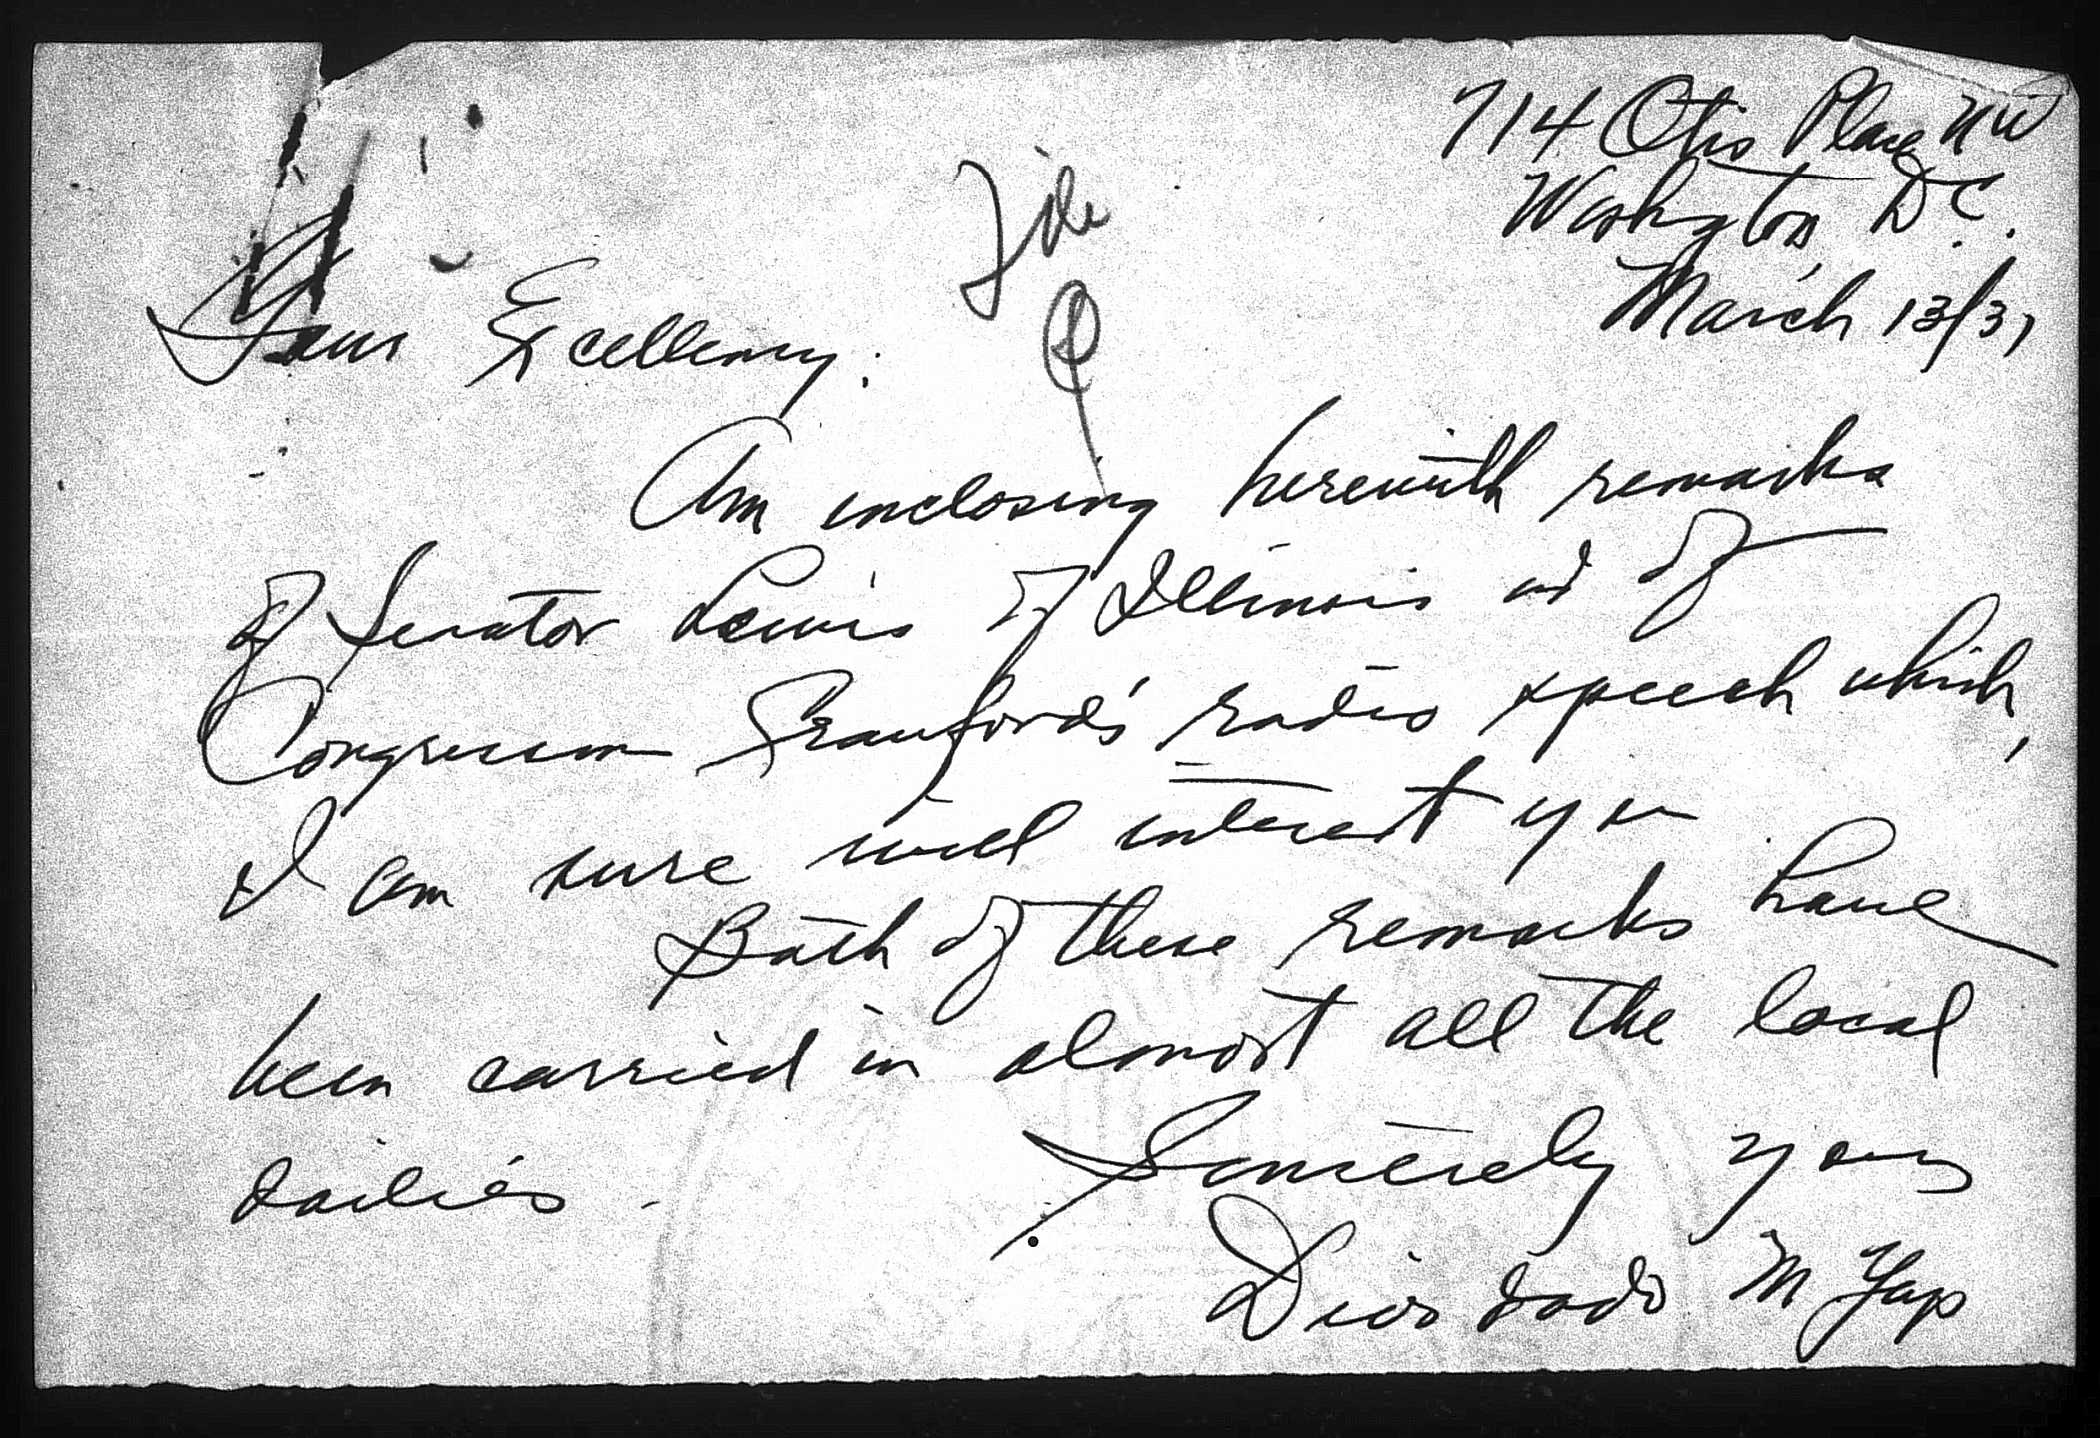 714 Otis Place NW
Washington, D.C.
March 13/37
File
Q
Your Excellency:
Am inclosing herewith remarks
of Senator Lewis of Illinois and of
Congressman Crawford's radio speech which,
I am sure will interest you
Both of these remarks have
been carried in almost all the local
dailies.
Sincerely yours
Diosdado M Yap